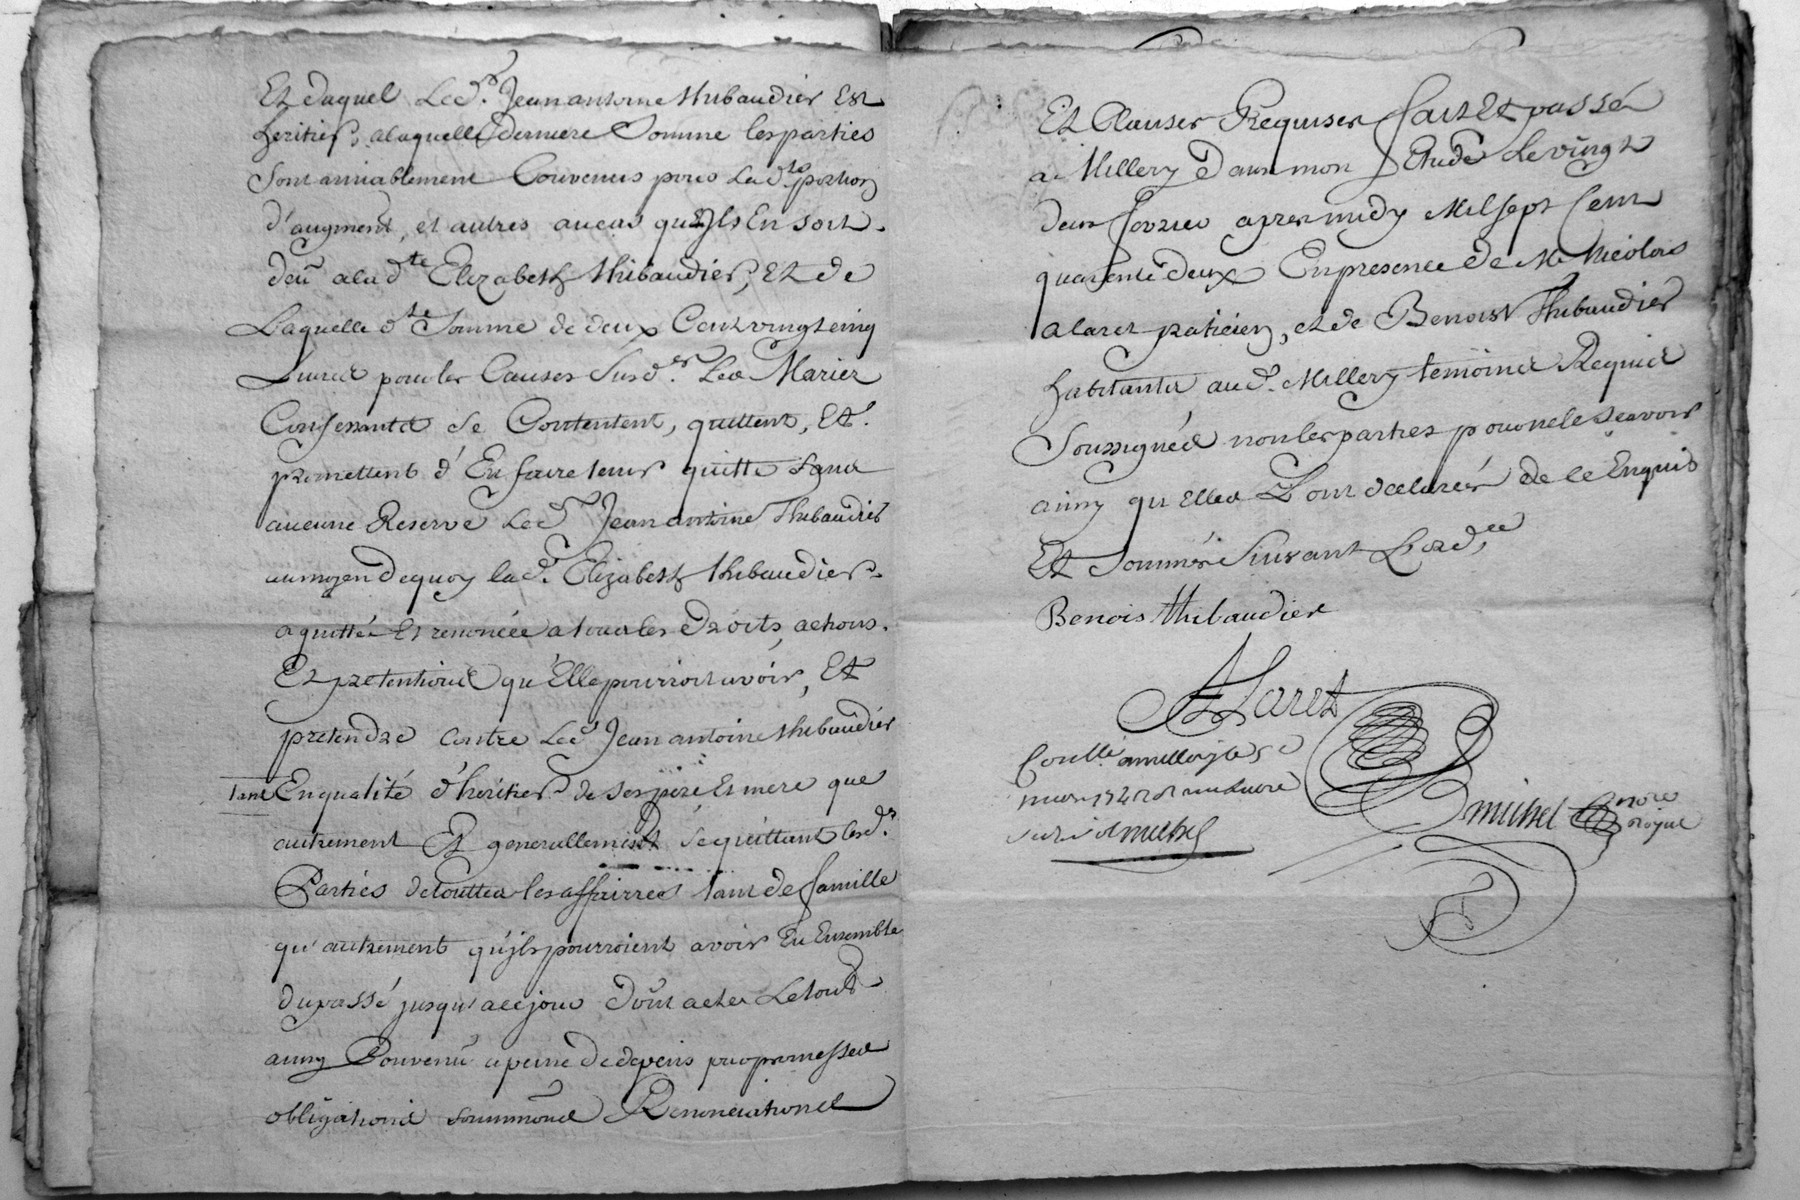 Et duquel Led.r Jean antoine thibaudier Est
heritier, a laquelle derniere Somme les parties
Sont amiablement Convenus pour lad.te portion
d'augment, et autres au cas qu'Ils En soit
deu a la dte Elizabeth thibaudier, Et de
Laquelle dte Somme de deux Cent vingt cinq
Livres pour les Causes Susd.es Les Mariez
Confessants se Contentent, quittent, Et
promettent d'En faire tenir quitte Sans
aucune Reserve Led.r Jean antoine Thibaudier
au moyen de quoy lad.e Elizabeth thibaudier
a quitté Et renoncée a tous les Droits, actions
Et pretentions qu'Elle pourroit avoir, Et
pretendre contre Led Jean antoine thibaudier
tant En qualité d'heritier de ses pere Et mere que
autrement Et generallement se quittant lesd.s
Parties de touttes les affairres tant de famille
qu'autrement qu'ils pourroient avoir Eu Ensemble
du passé jusqu'a ce jour Dont actes Le tout
ainsy Convenu a peine de depens par promesses
obligations soummissions Renonciations
Et Clauses Requises fait Et passé
a Millery Dans mon Etude Le vingt
deux fevrier apres midy Mil sept Cent
quarente deux En presence de Me Nicolas
alaret praticien, et de Benoist Thibaudier
habitants aud. Millery temoins Requis
Soussignés non les parties pour ne le scavoir
ainsy qu'Elles L'ont declarés de ce Enquis
Et Sommés Suivant L'ord.ce
Benois thibaudier
ALaret
Coullé a millery le
mars 1742
michel
michel nore
royal